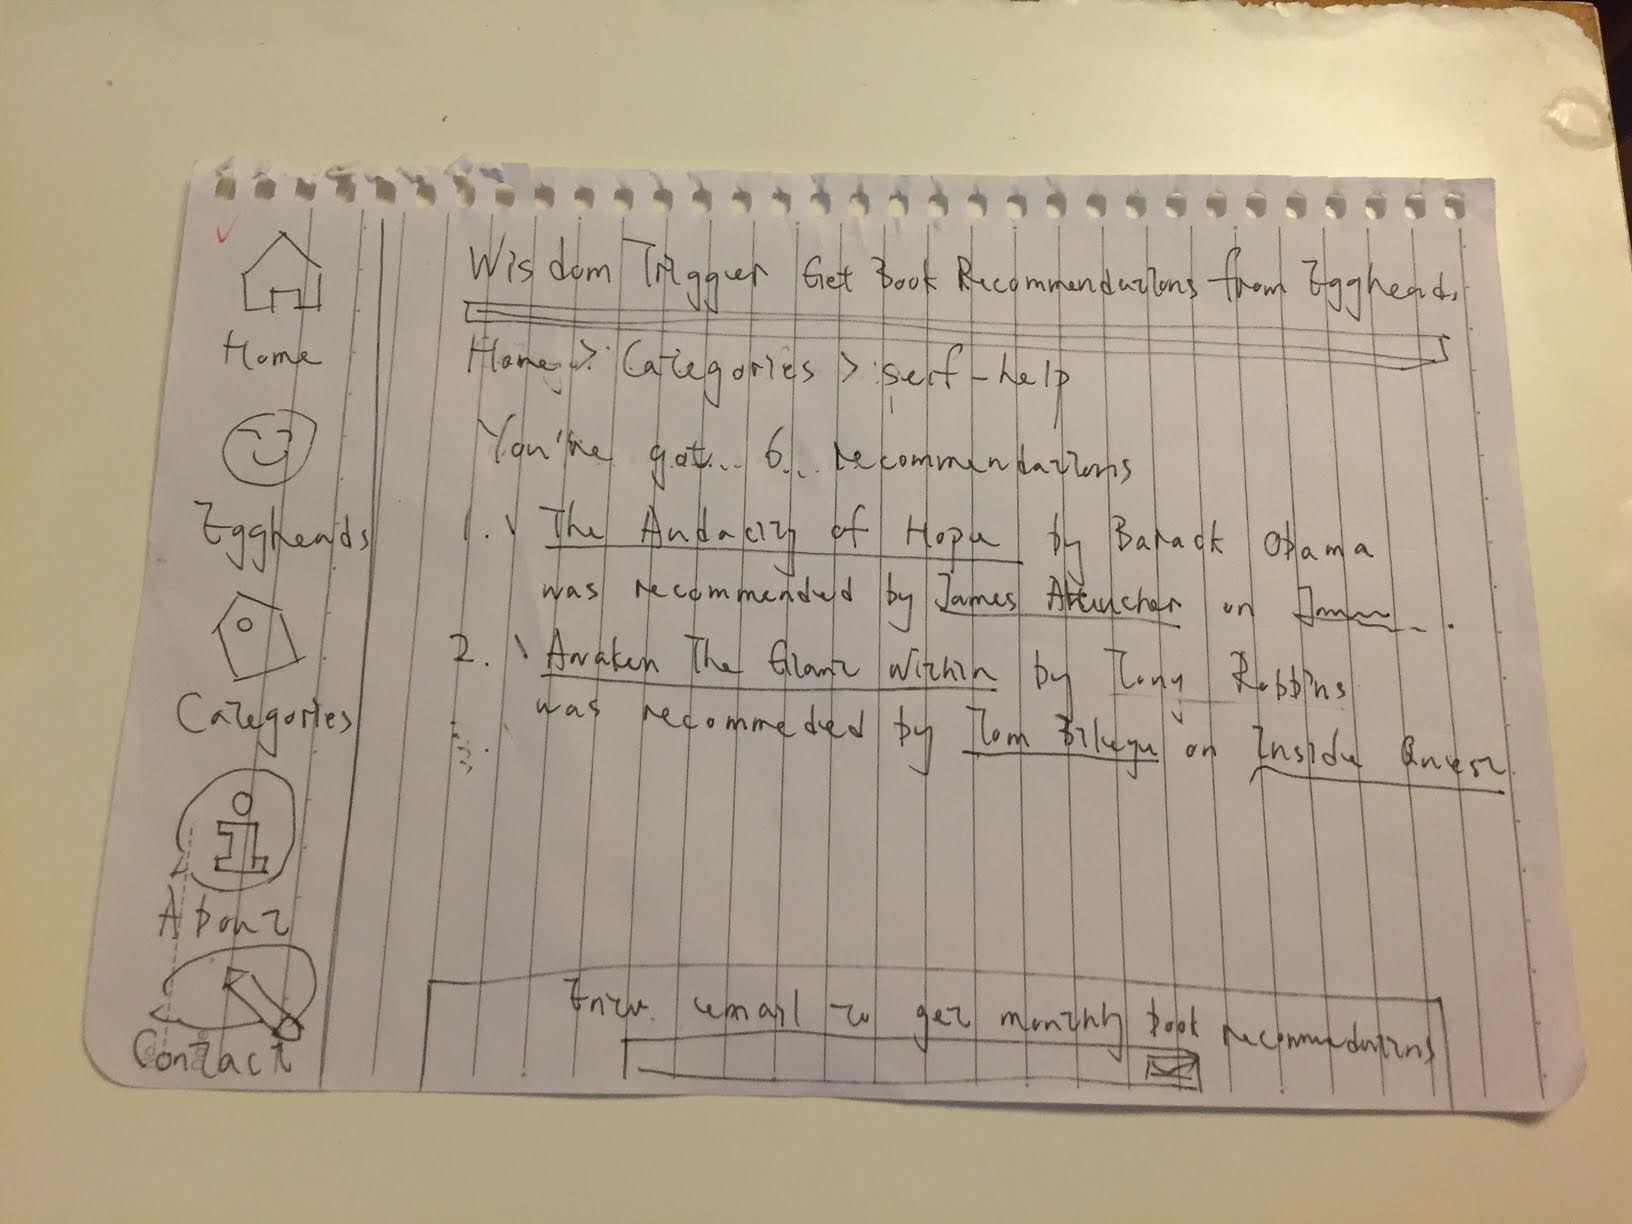 Home
Eggheads
Categories
About
Contact
Wisdom Trigger Get Book Recommendations from Eggheads.
Home > Categories > self-help
You've got... 6... recommendations
1. The Audacity of Hope by Barack Obama
was recommended by James on
2. Awaken The Giant Within by Tony Robbins
was recommeded by Tom Bilyeu on Inside Quest
Enter email to get monthly book recommendations